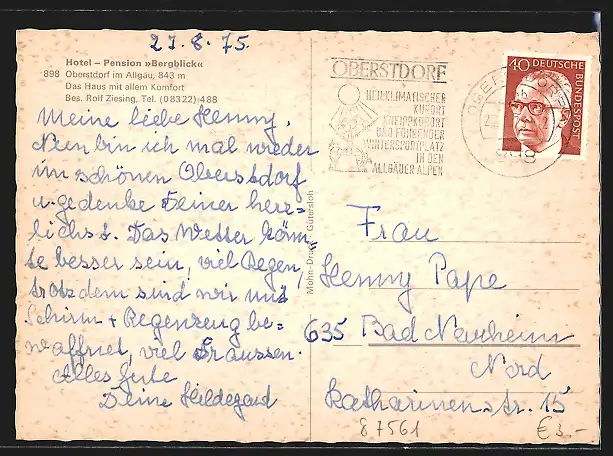 27.8.75.
Hotel – Pension »Bergblick«
898 Oberstdorf im Allgäu, 843 m
Das Haus mit allem Komfort
Bes. Rolf Ziesing, Tel. (08322) 488
Meine liebe Henny.
Nun bin ich mal wieder
im schönen Oberstdorf
u. gedenke Deiner herz=
lichst. Das Wetter könn=
te besser sein, viel Regen,
trotzdem sind wir mit
Schirm + Regenzeug be=
waffnet, viel draussen.
Alles Gute
Deine Hildegard
Mohn-Druck · Gütersloh
OBERSTDORF
HEILKLIMATISCHER
KURORT
KNEIPPKURORT
UND FÜHRENDER
WINTERSPORTPLATZ
IN DEN
ALLGÄUER ALPEN
OBERSTDORF
898
40 DEUTSCHE
BUNDESPOST
Frau
Henny Pape
635 Bad Nauheim
Nord
Katharinenstr. 15
87561
€3.-